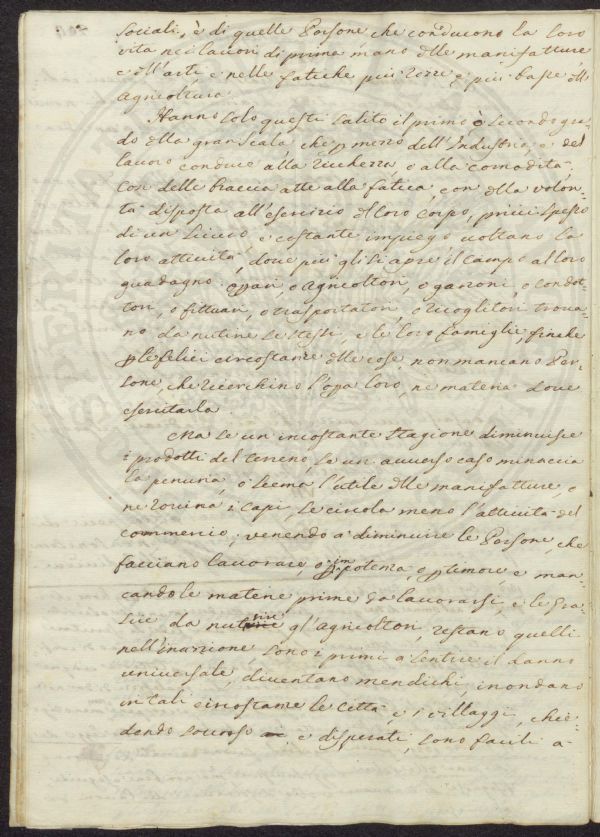 sociali, è di quelle Persone che conducono la loro
vita nei lavori di prima mano delle manifatture
e dell'arti e nelle fatiche più rozze e più basse dell'
agricoltura.
Hanno solo questi salito il primo ò secondo gra-
do della gran scala, che p mezzo dell'Industria, e del
lavoro conduce alla ricchezza e alla comodità.
Con delle braccia atte alla fatica, con della volon-
tà disposta all'esercizio del loro corpo, privi spesso
di un sicuro, e costante impiego voltano la
loro attività, dove più gli si apre il campo al loro
guadagno. Opari, o agricoltori, o garzoni, o condot-
tori, o fittuari, o trasportatori, o ricoglitori trova-
no da nutrire se stessi, e le loro famiglie, finche
p le felici circostanze delle cose, non mancano Per-
sone, che ricerchino l'opa loro, ne materia dove
esercitarla.
Ma se un incostante stagione diminuisce
i prodotti del terreno, se un avverso caso minaccia
la penuria, o scema l'utile delle manifatture, o
ne rovina i capi, se circola meno l'attività del
commercio; venendo a diminuire le Persone, che
facciano lavorare, o p impotenza, o p timore, e man-
cando le materie prime da lavorarsi, e le gra-
scie da nutrire gl'agricoltori, restano quelli
nell'inazione, sono i primi a sentire il danno
universale, diventano mendichi, inondano
in tali circostanze le Città, e i villaggi, chie-
dendo soccorso e disperati, sono facili a